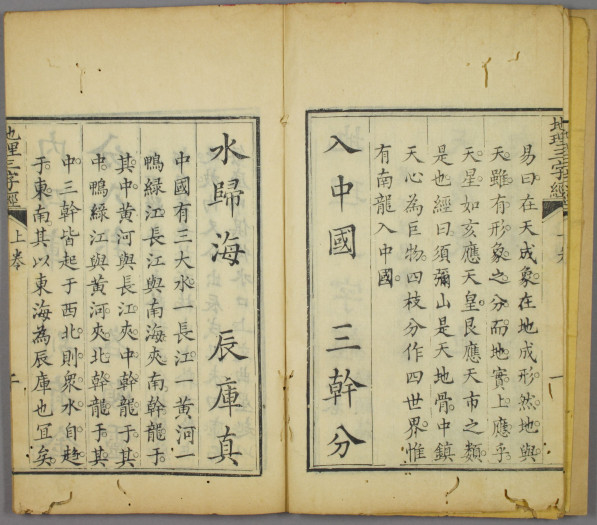 地理三字經
易曰在天成象在地成形然地與
天雖有形象之分而地實上應乎
天星如亥應天皇艮應天市之類
是也經曰須彌山是天地骨中鎮
天心為巨物四枝分作四世界惟
有南龍入中國
入中國 三幹分
水歸海 辰庫真
中國有三大水一長江一黃河一
鴨綠江長江與南海夾南幹龍于
其中黃河與長江夾中幹龍于其
中鴨綠江與黃河夾北幹龍于其
中三幹皆起于西北則衆水自趍
于東南其以東海為辰庫也宜矣
地理三字經
上卷
二